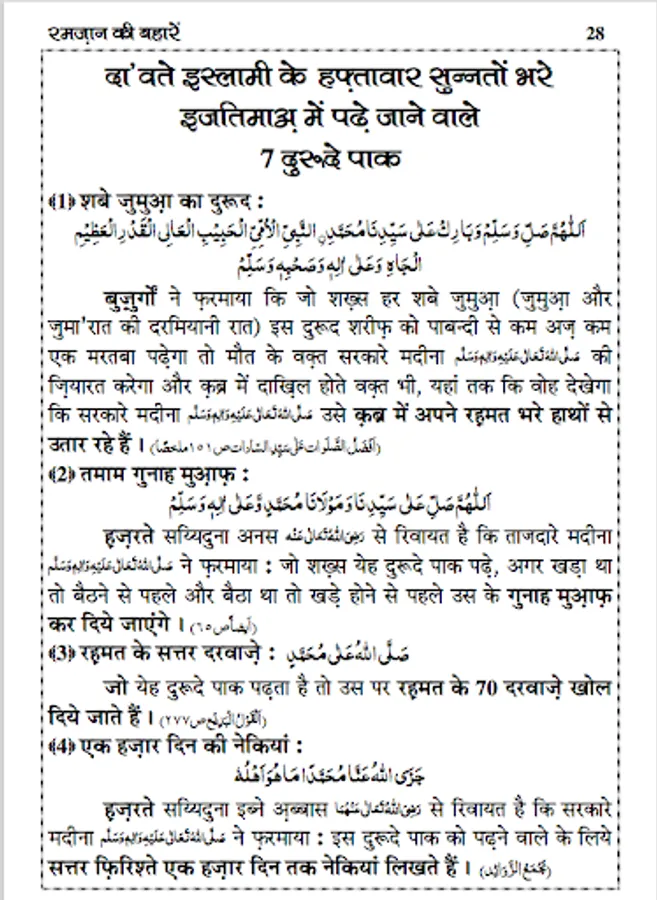 रमज़ान की बहारें 28
दा'वते इस्लामी के हफ़्तावार सुन्नतों भरे
इजतिमाअ़ में पढ़े जाने वाले
7 दुरूदे पाक
﴾1﴿ शबे जुमुआ़ का दुरूद :
اَللّٰهُمَّ صَلِّ وَسَلِّمْ وَبَارِكْ عَلٰى سَيِّدِنَا مُحَمَّدِنِ النَّبِيِّ الْاُمِّيِّ الْحَبِيْبِ الْعَالِى الْقَدْرِ الْعَظِيْمِ
الْجَاهِ وَعَلٰى اٰلِهٖ وَصَحْبِهٖ وَسَلِّمْ
बुज़ुर्गों ने फ़रमाया कि जो शख़्स हर शबे जुमुआ़ (जुमुआ़ और
जुमा'रात की दरमियानी रात) इस दुरूद शरीफ़ को पाबन्दी से कम अज़ कम
एक मरतबा पढ़ेगा तो मौत के वक़्त सरकारे मदीना صَلَّى اللهُ تَعَالٰى عَلَيْهِ وَاٰلِهٖ وَسَلَّم की
ज़ियारत करेगा और क़ब्र में दाख़िल होते वक़्त भी, यहां तक कि वोह देखेगा
कि सरकारे मदीना صَلَّى اللهُ تَعَالٰى عَلَيْهِ وَاٰلِهٖ وَسَلَّم उसे क़ब्र में अपने रह़मत भरे हाथों से
उतार रहे हैं । (اَفْضَلُ الصَّلَوات عَلٰی سَیِّدِ السّادات ص ۱۵۱ ملخصًا)
﴾2﴿ तमाम गुनाह मुआ़फ़ :
اَللّٰهُمَّ صَلِّ عَلٰى سَيِّدِنَا وَمَوْلَانَا مُحَمَّدٍ وَّعَلٰى اٰلِهٖ وَسَلِّمْ
ह़ज़रते सय्यिदुना अनस رَضِىَ اللهُ تَعَالٰى عَنْه से रिवायत है कि ताजदारे मदीना
صَلَّى اللهُ تَعَالٰى عَلَيْهِ وَاٰلِهٖ وَسَلَّم ने फ़रमाया : जो शख़्स येह दुरूदे पाक पढ़े, अगर खड़ा था
तो बैठने से पहले और बैठा था तो खड़े होने से पहले उस के गुनाह मुआ़फ़
कर दिये जाएंगे । (اَیضاً ص ۶۵)
﴾3﴿ रह़मत के सत्तर दरवाज़े : صَلَّى اللهُ عَلٰى مُحَمَّدٍ
जो येह दुरूदे पाक पढ़ता है तो उस पर रह़मत के 70 दरवाज़े खोल
दिये जाते हैं । (اَلْقَوْلُ الْبَدِیع ص ۲۷۷)
﴾4﴿ एक हज़ार दिन की नेकियां :
جَزَى اللهُ عَنَّا مُحَمَّدًا مَا هُوَ اَهْلُهٗ
ह़ज़रते सय्यिदुना इब्ने अ़ब्बास رَضِىَ اللهُ تَعَالٰى عَنْهُمَا से रिवायत है कि सरकारे
मदीना صَلَّى اللهُ تَعَالٰى عَلَيْهِ وَاٰلِهٖ وَسَلَّم ने फ़रमाया : इस दुरूदे पाक को पढ़ने वाले के लिये
सत्तर फ़िरिश्ते एक हज़ार दिन तक नेकियां लिखते हैं । (مَجْمَعُ الزَّوَائِد)